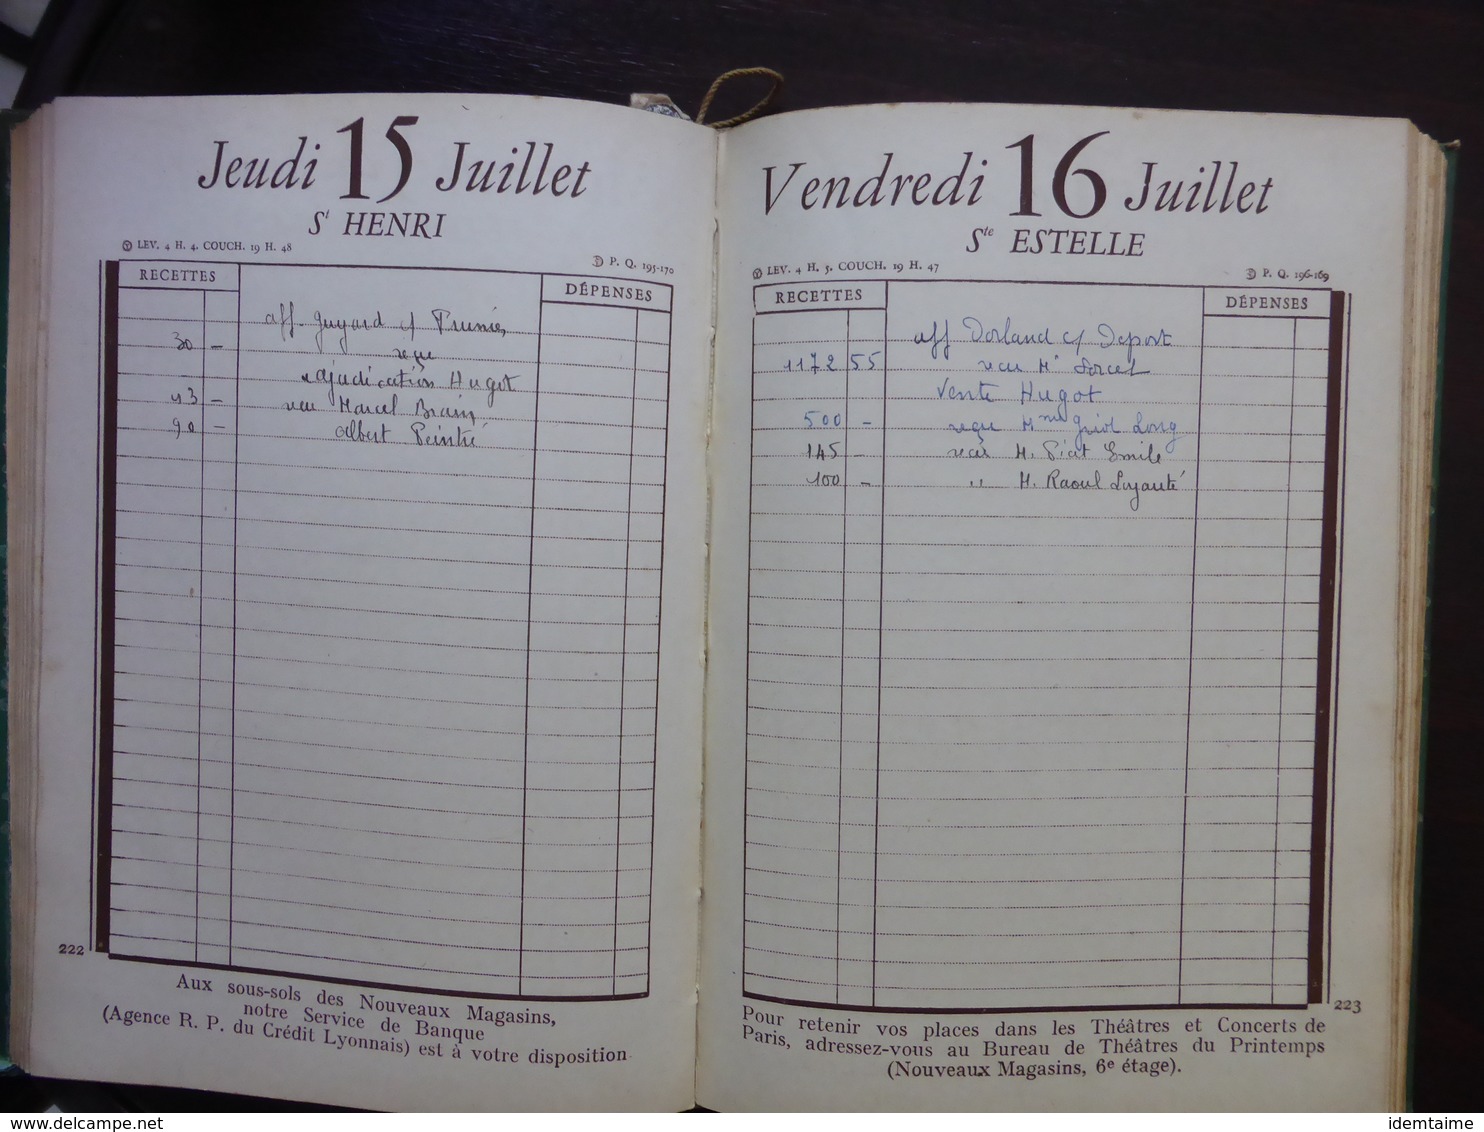 Jeudi 15 Juillet
St HENRI
LEV. 4 H. 4. COUCH. 19 H. 48
P. Q. 195-170
RECETTES
DÉPENSES
aff. Guyard c/
30 —
reçu
adjudication Hugot
—
reçu Marcel
90 —
Albert Peintré
222
Aux sous-sols des Nouveaux Magasins,
notre Service de Banque
(Agence R. P. du Crédit Lyonnais) est à votre disposition
Vendredi 16 Juillet
Ste ESTELLE
LEV. 4 H. 5. COUCH. 19 H. 47
P. Q. 196-169
RECETTES
DÉPENSES
aff Dorland c/ Deport
1172 55 reçu Me Sorcel
Vente Hugot
500 — reçu Mme Long
145 — reçu M. Piat Emile
100 — " M. Raoul
223
Pour retenir vos places dans les Théâtres et Concerts de
Paris, adressez-vous au Bureau de Théâtres du Printemps
(Nouveaux Magasins, 6e étage).
www.delcampe.net
identaime